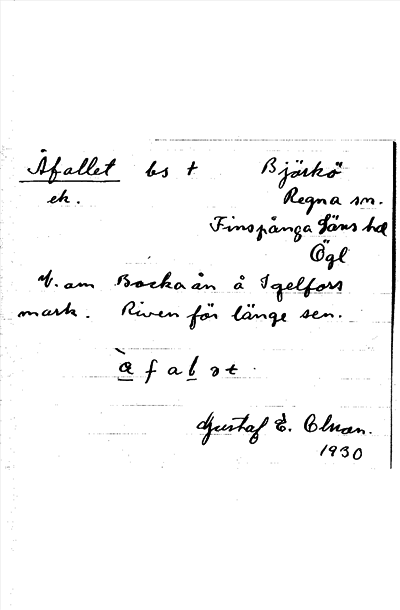 Åfallet bs † Björkö
ek. Regna sn.
Finspånga läns hd
Ögl
V. om Bocka ån å Igelfors
mark. Riven för länge sen.
Gustaf E. Olson.
1930